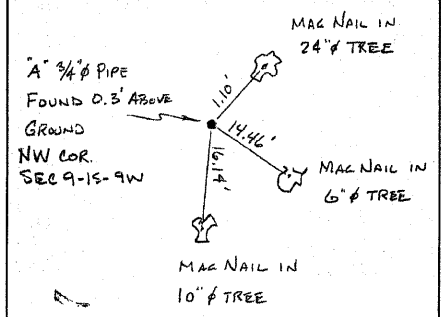 MAG NAIL IN
24"ø TREE
"A" 3/4"ø PIPE
FOUND 0.3' ABOVE
GROUND
NW COR.
SEC 9-1S-9W
1.10'
14.46'
16.14'
MAG NAIL IN
6"ø TREE
MAG NAIL IN
10"ø TREE